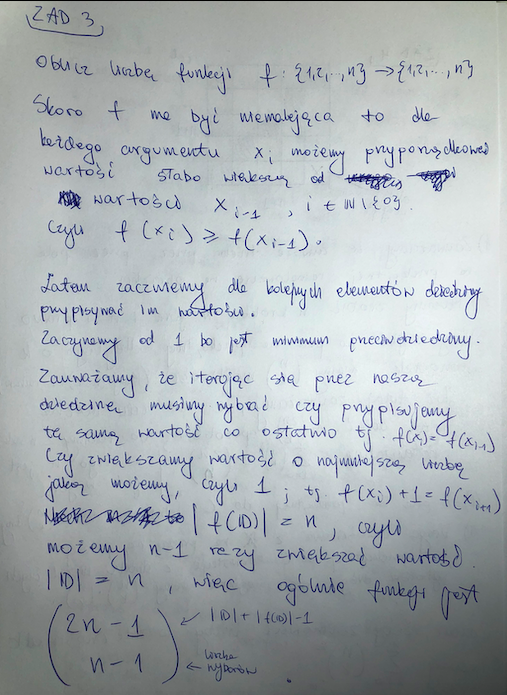 ZAD 3
Oblicz liczbę funkcji f: {1,2,...,n} → {1,2,...,n}
Skoro f ma być niemalejąca to dla
każdego argumentu x_i możemy przyporządkować
wartość słabo większą od
wartości x_{i-1}, i ∈ ℕ\{0}.
Czyli f(x_i) ≥ f(x_{i-1}).
Zatem zaczniemy dla kolejnych elementów dziedziny
przypisywać im wartości.
Zaczynamy od 1 bo jest minimum przeciwdziedziny.
Zauważamy, że iterując się przez naszą
dziedzinę musimy wybrać czy przypisujemy
tę samą wartość co ostatnio tj. f(x_i) = f(x_{i-1})
Czy zwiększamy wartość o najmniejszą liczbę
jaką możemy, czyli 1; tj. f(x_i)+1 = f(x_{i+1})
|f(ID)| = n, czyli
możemy n-1 razy zwiększać wartość.
|ID| = n, więc ogólnie funkcji jest
(2n-1 ← |ID|+|f(ID)|-1
n-1) ← liczba wyborów .